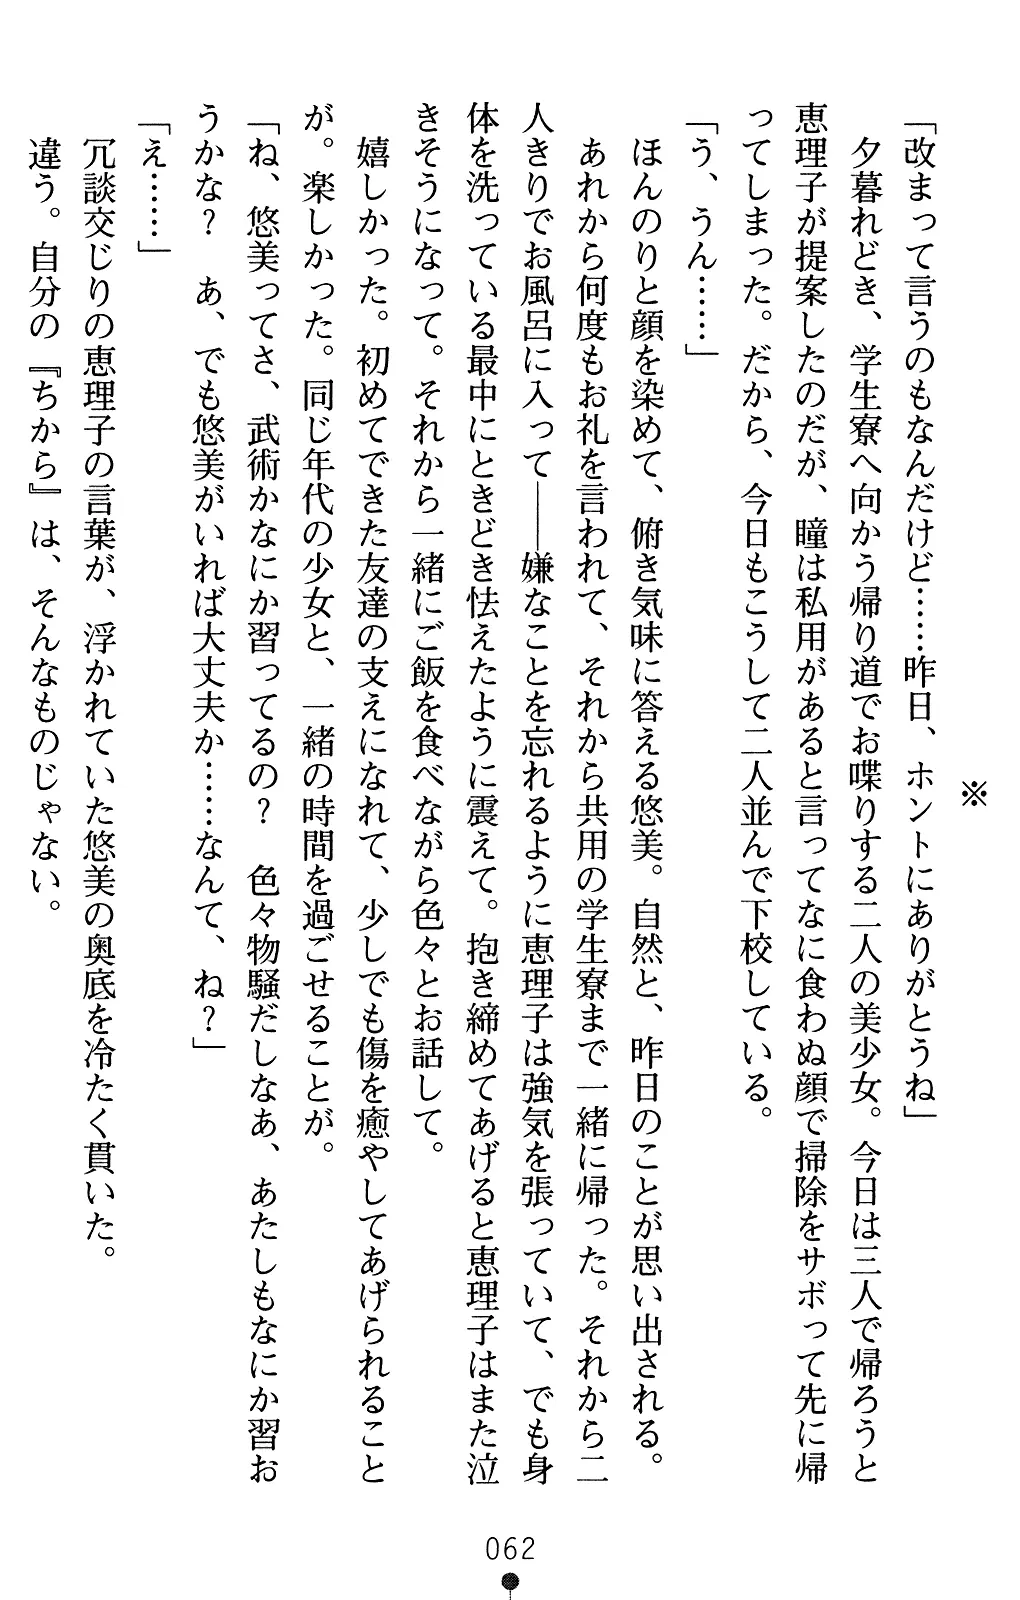 ※
「改まって言うのもなんだけど……昨日、ホントにありがとうね」
　夕暮れどき、学生寮へ向かう帰り道でお喋りする二人の美少女。今日は三人で帰ろうと
恵理子が提案したのだが、瞳は私用があると言ってなに食わぬ顔で掃除をサボって先に帰
ってしまった。だから、今日もこうして二人並んで下校している。
「う、うん……」
　ほんのりと顔を染めて、俯き気味に答える悠美。自然と、昨日のことが思い出される。
　あれから何度もお礼を言われて、それから共用の学生寮まで一緒に帰った。それから二
人きりでお風呂に入って――嫌なことを忘れるように恵理子は強気を張っていて、でも身
体を洗っている最中にときどき怯えたように震えて。抱き締めてあげると恵理子はまた泣
きそうになって。それから一緒にご飯を食べながら色々とお話して。
　嬉しかった。初めてできた友達の支えになれて、少しでも傷を癒やしてあげられること
が。楽しかった。同じ年代の少女と、一緒の時間を過ごせることが。
「ね、悠美ってさ、武術かなにか習ってるの？　色々物騒だしなあ、あたしもなにか習お
うかな？　あ、でも悠美がいれば大丈夫か……なんて、ね？」
「え……」
　冗談交じりの恵理子の言葉が、浮かれていた悠美の奥底を冷たく貫いた。
　違う。自分の『ちから』は、そんなものじゃない。
062